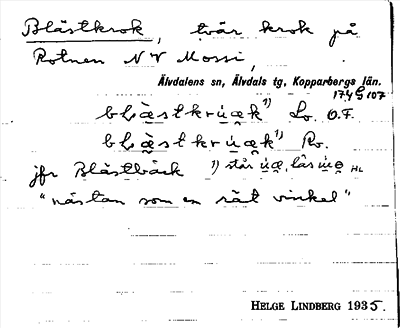 Blästkrok, tvär krok på
Rotnen N V Mossi,
Älvdalens sn, Älvdals tg, Kopparbergs län.
174 G 107
bḷæ̀stkrú̯æk¹⁾ Lo. O.F.
bḷæ̀stkrú̯æk¹⁾ Ro.
jfr Blästbäck ¹⁾ står ú̯æ, läs ú̯ɯə HL
"nästan som en rät vinkel"
HELGE LINDBERG 1935.